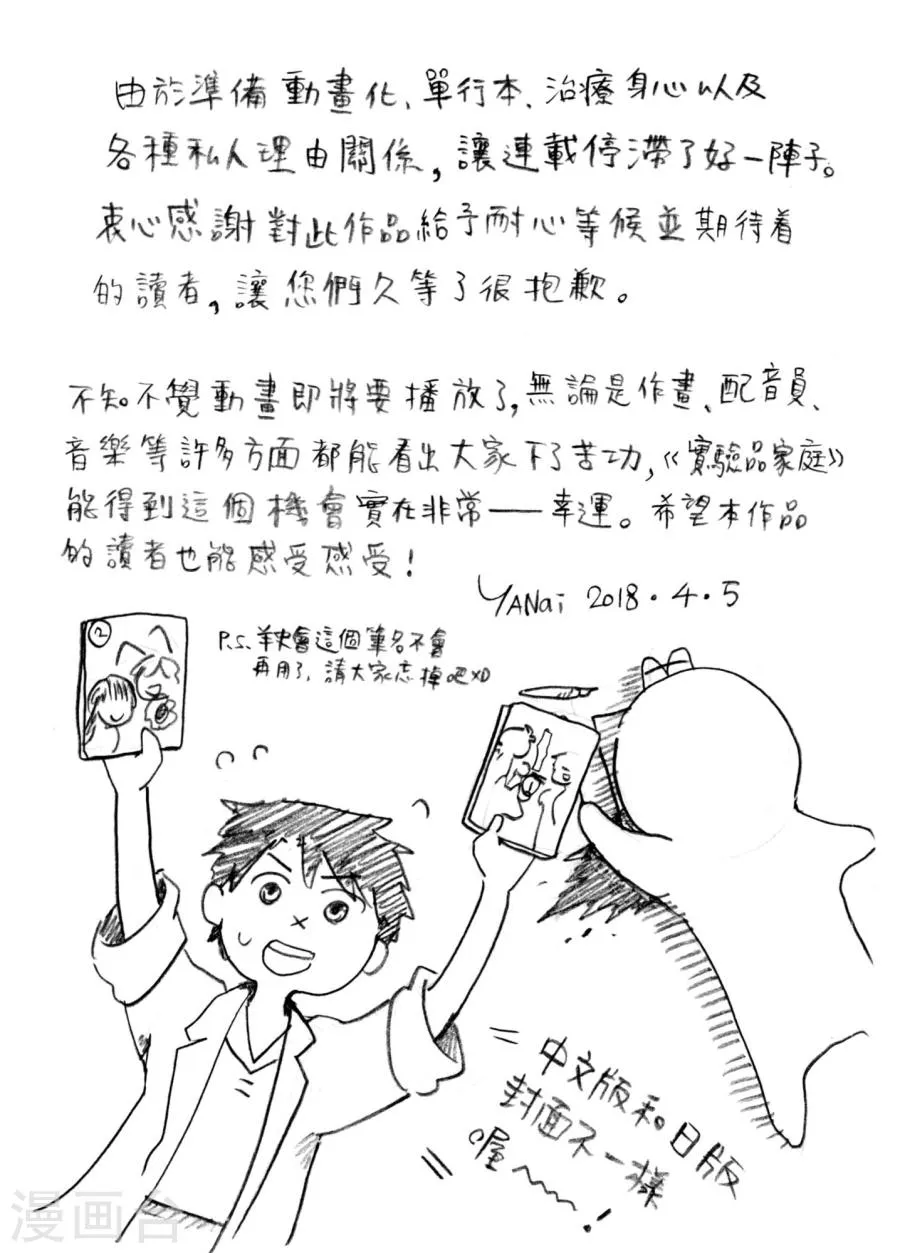 由於準備動畫化、單行本、治療身心以及
各種私人理由關係，讓連載停滯了好一陣子。
衷心感謝對此作品給予耐心等候並期待着
的讀者，讓您們久等了很抱歉。
不知不覺動畫即將要播放了，無論是作畫、配音員、
音樂等許多方面都能看出大家下了苦功，《實驗品家庭》
能得到這個機會實在非常——幸運。希望本作品
的讀者也能感受感受！
YANai 2018.4.5
P.S. 羊史會這個筆名不會
再用了，請大家忘掉吧XD
②
中文版和日版
封面不一樣
喔～！
漫画台